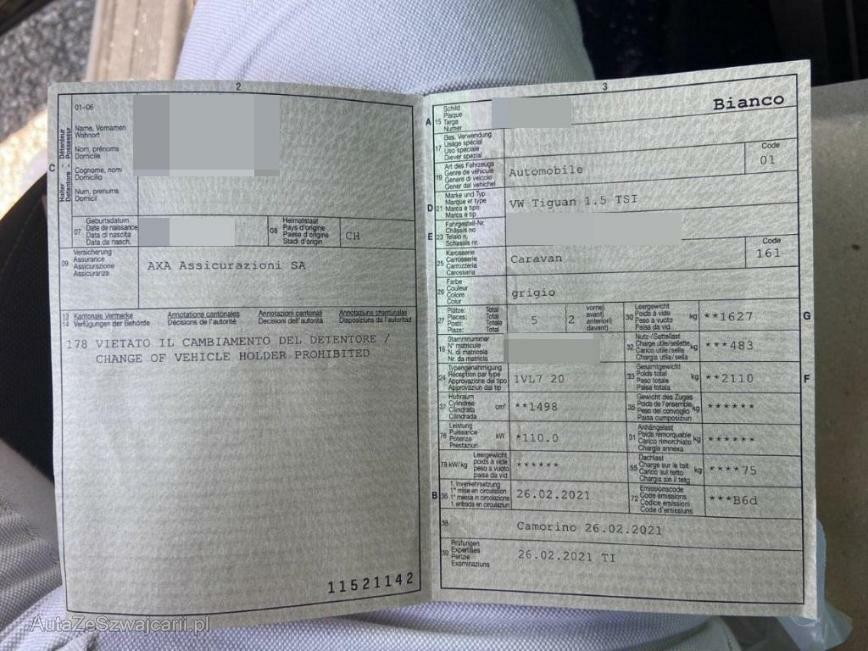 2
01-06
Name, Vornamen
Wohnort
Nom, prénoms
Domicile
Cognome, nomi
Domicilio
Num, prenums
Domicil
C
Halter Détenteur
Detentore Possessur
07
Geburtsdatum
Date de naissance
Data di nascita
Data da nasch.
08
Heimatstaat
Pays d'origine
Paese d'origine
Stadi d'origin
CH
09
Versicherung
Assurance
Assicurazione
Assicuranza
AXA Assicurazioni SA
13
14
Kantonale Vermerke
Verfügungen der Behörde
Annotations cantonales
Décisions de l'autorité
Annotazioni cantonali
Decisioni dell'autorità
Annotaziuns chantunalas
Disposiziuns da l'autoritad
178 VIETATO IL CAMBIAMENTO DEL DETENTORE /
CHANGE OF VEHICLE HOLDER PROHIBITED
11521142
3
A
15
Schild
Plaque
Targa
Numer
Bianco
17
Usage spécial
Uso speciale
Diever spezial
Code
01
19
Art des Fahrzeugs
Genre de véhicule
Genere di veicolo
Gener dal vehichel
Automobile
D
21
Marke und Typ
Marque et type
Marca e tipo
Marca e tip
VW Tiguan 1.5 TSI
E
23
Fahrgestell-Nr.
Châssis no
Telaio n.
Schassis nr.
25
Karosserie
Carrosserie
Carrozzeria
Carossaria
Caravan
Code
161
26
Farbe
Couleur
Colore
Colur
grigio
27
Plätze: Total
Places: Total
Posti: Totale
Plazs: Total
5
2
vorne
avant
anteriori
davant
30
Leergewicht
Poids à vide
Peso a vuoto
Paisa da vid
kg
**1627
G
18
Stammnummer
N° matricule
N. di matricola
Nr. da matricla
32
Nutz-/Sattellast
Charge utile/sellette
Carico utile/sella
Chargia utila/sella
kg
***483
24
Typengenehmigung
Réception par type
Approvazione del tipo
Approvaziun dal tip
1VL7 20
33
Gesamtgewicht
Poids total
Peso totale
Paisa totala
kg
**2110
F
37
Hubraum
Cylindrée
Cilindrata
Cilindrada
cm³
**1498
35
Gewicht des Zuges
Poids de l'ensemble
Peso del convoglio
Paisa cumposiziun
kg
******
76
Leistung
Puissance
Potenza
Prestaziun
kW
*110.0
31
Anhängelast
Poids remorquable
Carico rimorchiato
Chargia annexa
kg
******
78 kW/kg
Leergewicht
poids à vide
peso a vuoto
paisa da vid
******
55
Dachlast
Charge sur le toit
Carico sul tetto
Chargia sin il tetg
kg
****75
B
36
1. Inverkehrsetzung
1re mise en circulation
1.a messa in circolazione
1. entrada en circulaziun
26.02.2021
72
Emissionscode
Code émissions
Codice emissioni
Code d'emissiuns
***B6d
38
Camorino 26.02.2021
39
Prüfungen
Expertises
Perizie
Examinaziuns
26.02.2021 TI
AutaZeSzwajcarii.pl